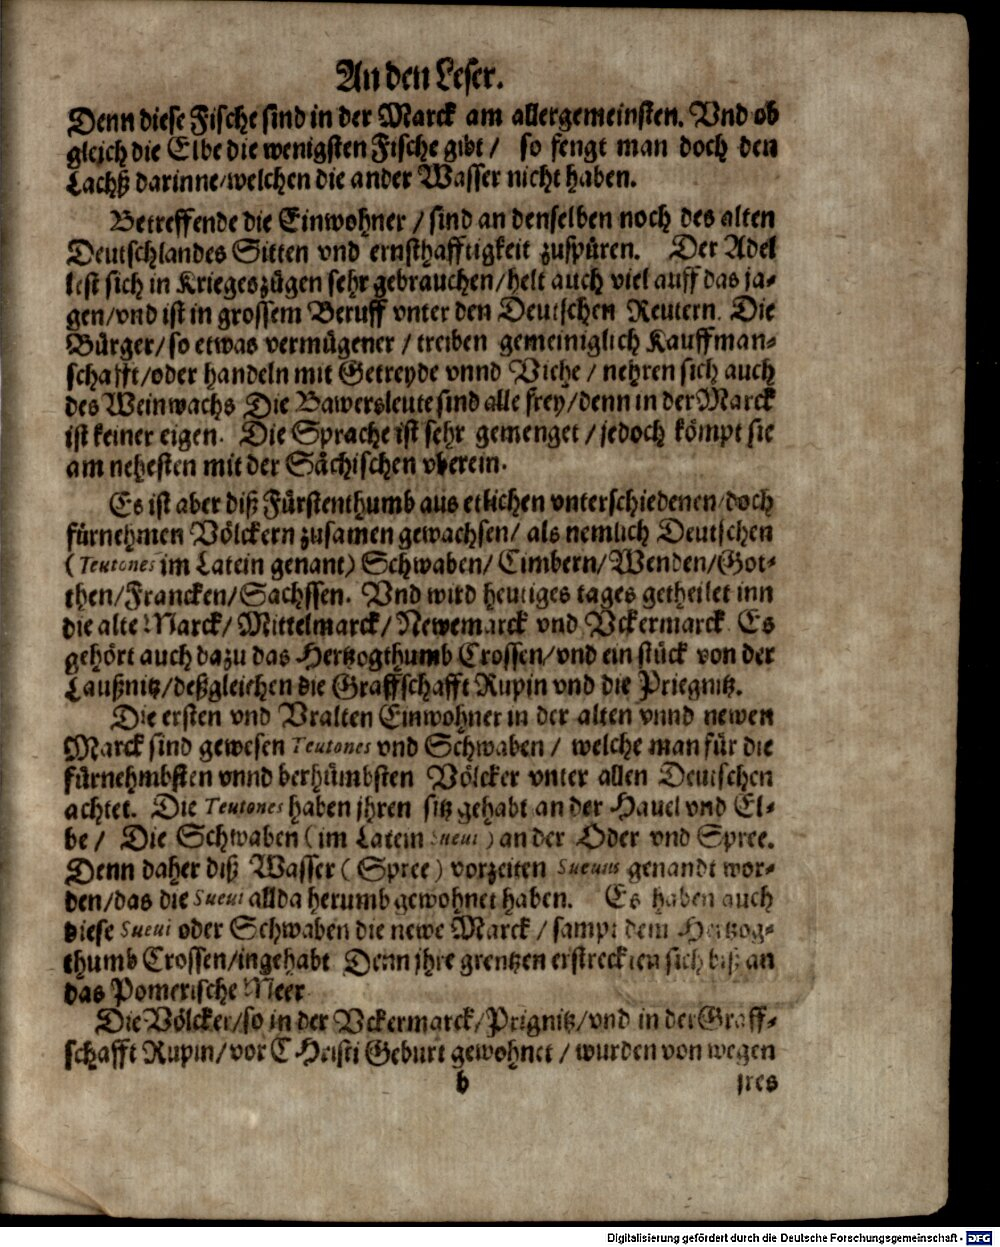 An den Leser.
Denn diese Fische sind in der Marck am allergemeinsten. Vnd ob
gleich die Elbe die wenigsten Fische gibt / so fengt man doch den
Lachß darinne/welchen die ander Wasser nicht haben.
Betreffende die Einwohner / sind an denselben noch des alten
Deutschlandes Sitten vnd ernsthafftigkeit zuspüren. Der Adel
lest sich in Kriegeszügen sehr gebrauchen/helt auch viel auff das ja-
gen/vnd ist in grossem Beruff vnter den Deutschen Reutern. Die
Bürger/so etwas vermügener / treiben gemeiniglich Kauffman-
schafft/oder handeln mit Getreyde vnnd Viehe / nehren sich auch
des Weinwachs Die Bawersleute sind alle frey/denn in der Marck
ist keiner eigen. Die Sprache ist sehr gemenget / jedoch kömpt sie
am nehesten mit der Sächischen vberein.
Es ist aber diß Fürstenthumb aus etlichen vnterschiedenen/doch
fürnehmen Völckern zusamen gewachsen/ als nemlich Deutschen
(Teutones im Latein genant) Schwaben/ Cimbern/Wenden/Got-
then/Francken/Sachssen. Vnd wird heutiges tages getheilet inn
die alte Marck/ Mittelmarck/Newemarck vnd Vckermarck Es
gehört auch dazu das Hertzogthumb Crossen/vnd ein stück von der
Laußnitz/deßgleichen die Graffschafft Rupin vnd die Priegnitz.
Die ersten vnd Vralten Einwohner in der alten vnnd newen
Marck sind gewesen Teutones vnd Schwaben / welche man für die
fürnehmbsten vnnd berhümbsten Völcker vnter allen Deutschen
achtet. Die Teutones haben jhren sitz gehabt an der Hauel vnd El-
be / Die Schwaben (im Latein Sueui) an der Oder vnd Spree.
Denn daher diß Wasser (Spree) vorzeiten Sueuus genandt wor-
den/das die Sueui allda herumb gewohnet haben. Es haben auch
diese Sueui oder Schwaben die newe Marck / sampt dem Hertzog-
thumb Crossen/ingehabt Denn jhre grentzen erstreckten sich biß an
das Pomerische Meer
Die Völcker/so in der Vckermarck/Prignitz/vnd in der Graff-
schafft Rupin/vor Christi Geburt gewohnet / wurden von wegen
b jres
Digitalisierung gefördert durch die Deutsche Forschungsgemeinschaft - DFG